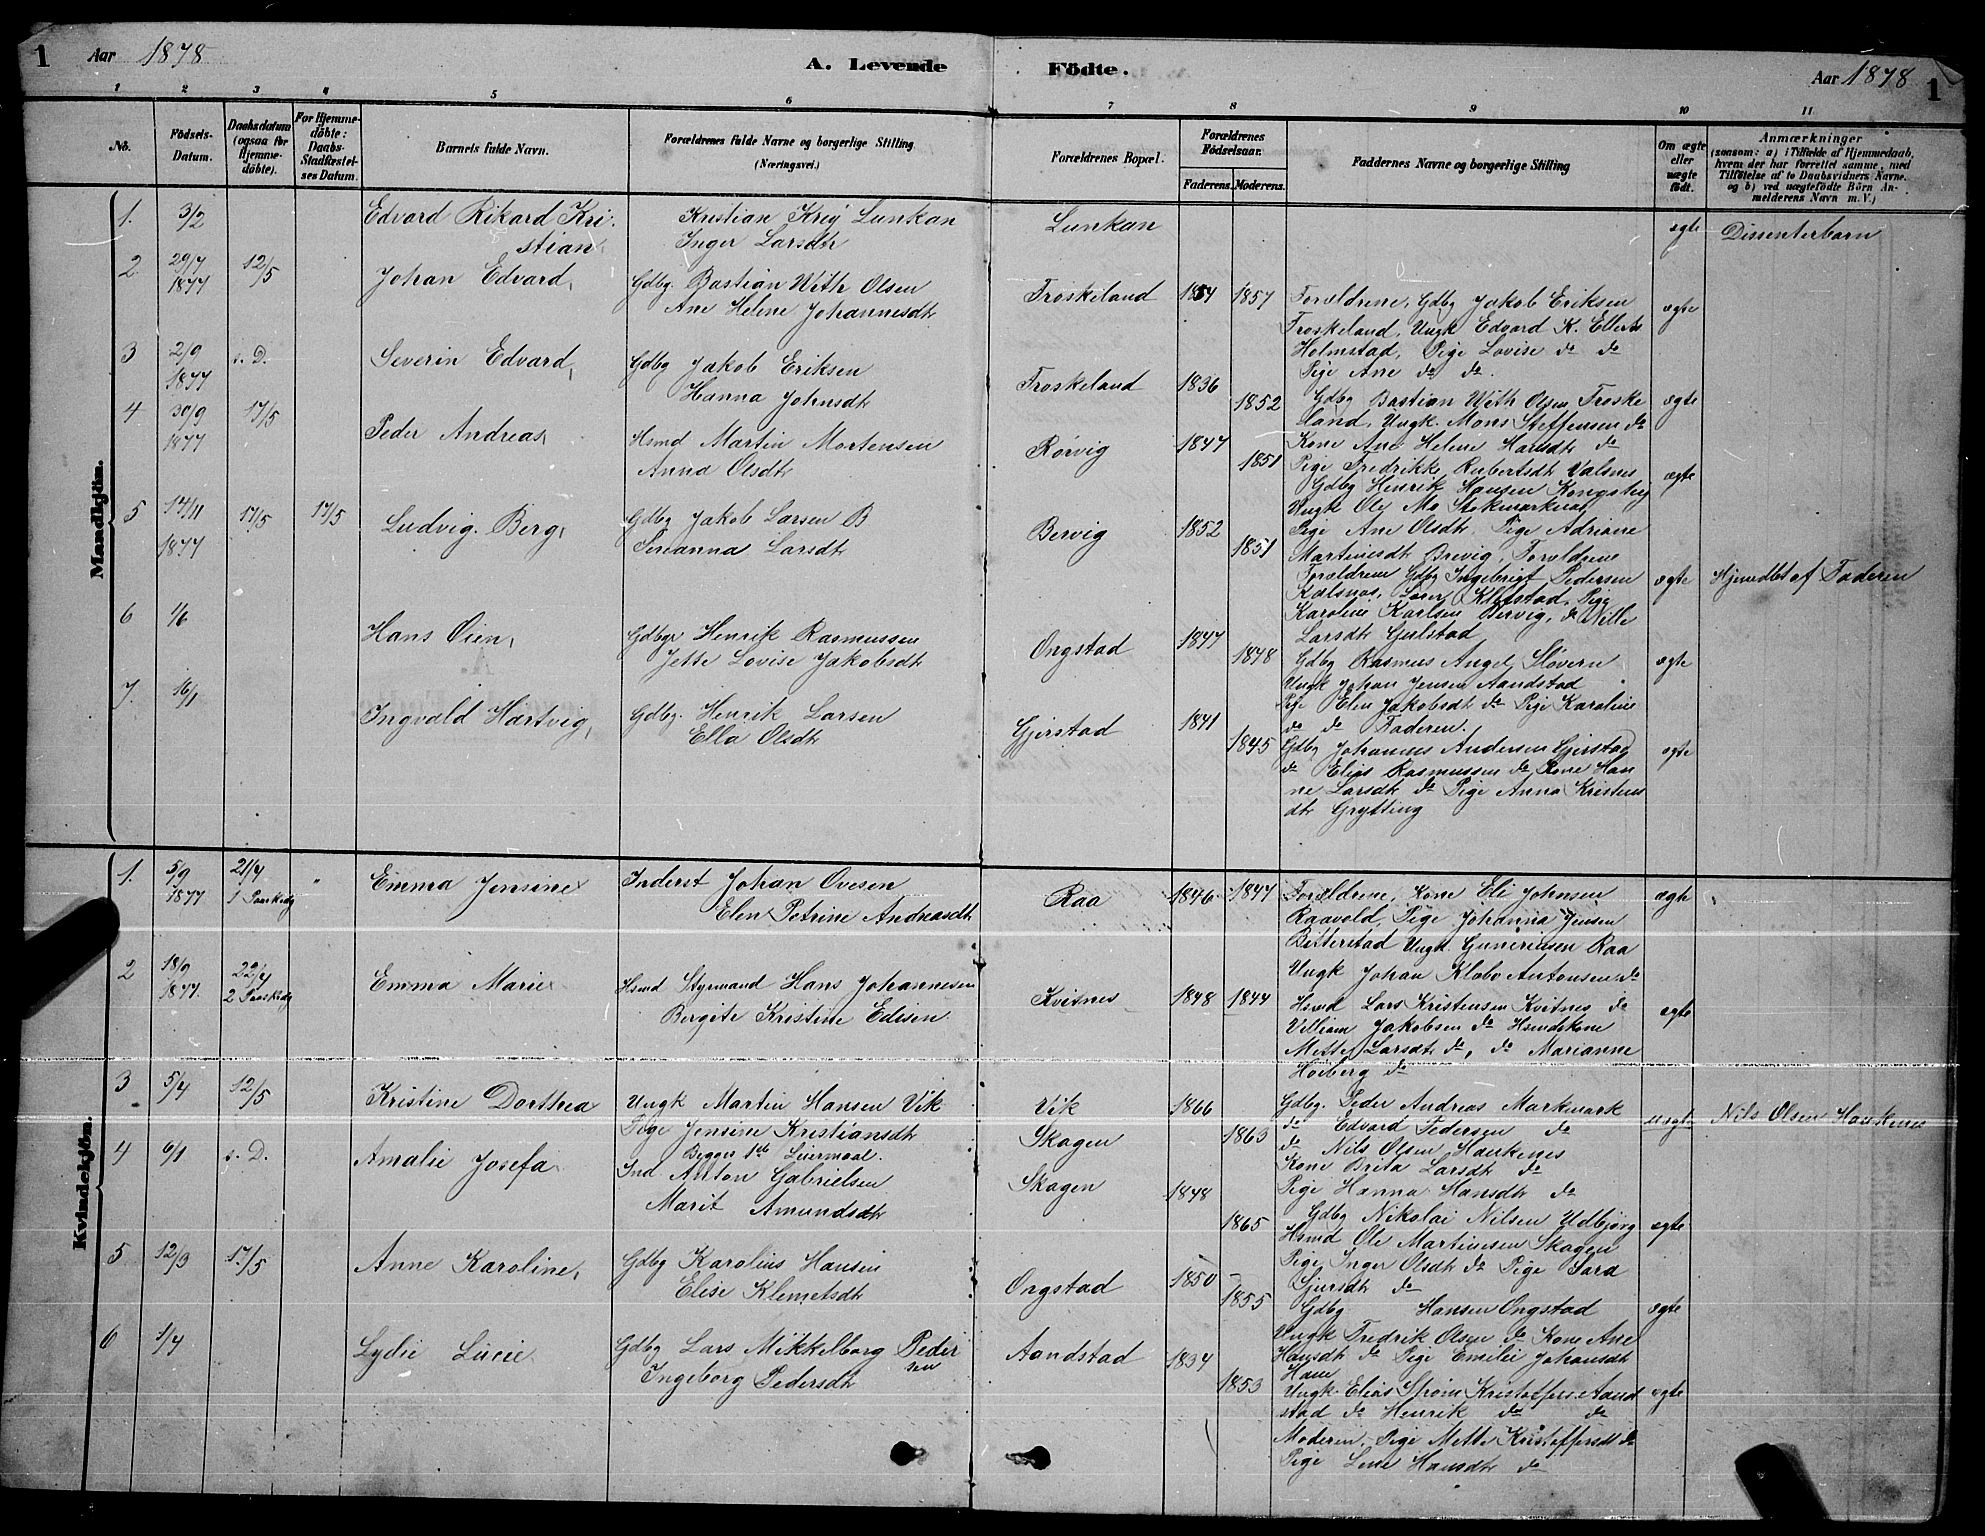 1 Aar 1878 A. Levende Födte. Aar 1878 1
1 2 3 4 5 6 7 8 9 10 11
No.
Födsels-Datum.
Daabsdatum (ogsaa for Hjemme-döbte).
For Hjemme-döbte: Daabs-Stadfæstel-ses Datum.
Barnets fulde Navn.
Forældrenes fulde Navne og borgerlige Stilling (Næringsvei.)
Forældrenes Bopæl.
Forældrenes Födselsaar.
Faderens. Moderens.
Faddernes Navne og borgerlige Stilling
Om ægte eller uægte födt.
Anmærkninger
(saasom: a) i Tilfælde af Hjemmedaab,
hvem der har forrettet samme, med
Tilföielse af to Daabsvidners Navne.
og b) ved uægtefödte Börn An-
melderens Navn m. V.)
Mandkjön.
1. 3/2 Edvard Rikard Kri-
stian
Kristian Krey Lunkan
Inger Larsdtr
Lunkan
ægte Dissenterbarn
2 29/7 1877 12/5 Johan Edvard,
Gdbg. Bastian With Olsen
Ane Helene Johannesdtr
Froskeland 1854 1857
Forældrene, Gdbg Jakob Eriksen
Froskeland, Ungk Edvard K. Ellerts
Holmstad, Pige Lovise do do
Pige Ane do do.
ægte
3 2/9 1877 s. D. Severin Edvard,
Gdbg Jakob Eriksen
Hanna Johnsdtr
Froskeland 1836 1852
Gdbg Bastian With Olsen Froske
land, Ungk. Mons Steffensen do
Kone Ane Helene Hansdtr do
Pige Fredrikke Rubertsdt Valsnes
ægte
4 30/9 1877 17/5 Peder Andreas,
Hsmd Martin Mortensen
Anna Olsdtr
Rørvig 1847 1851
Gdbg Henrik Hansen Kongsberg
Ungk Ole Mo Stokmarknes,
Pige Ane Olsdtr, Pige Adriane
Martinesdt Brevig, Forældrene
ægte
5 14/11 1877 17/5 17/5 Ludvig Berg,
Gdbg Jakob Larsen B
Simanna Larsdtr
Bervig 1852 1851
Forældrene Gdbg Ingebrigt Pedersen
Kalsnes, Lærer Klerstad, Pige
Karoline Karlsen Bervig, do Nille
Larsdtr Gulstad
ægte Hjemdbt af Faderen
6 1/6 Hans Oien,
Gdbgr Henrik Rasmussen
Jette Lovise Jakobsdtr
Ongstad 1847 1878
Gdbg Rasmus Angel Sløvern
Ungk Johan Jensen Aandstad
Pige Elen Jakobsdt do Pige Karoline
do do Faderen.
ægte
7. 16/1 Ingvald Hartvig,
Gdbg. Henrik Larsen
Ella Olsdtr
Gjerstad 1841 1845
Gdbg Johannes Andersen Gjerstad
do Elias Rasmussen do Kone Han
ne Larsdtr do Pige Anna Kristens
dtr Grytting
ægte
Kvindekjön.
1. 5/9 1877 21/4 1 Paaskedg " Emma Jensine
Inderst Johan Ovesen
Elen Petrine Andreasdtr
Raa 1846 1847
Forældrene, Kone Eli Johnsen
Raavold, Pige Johanna Jensen
Bitterstad Ungk. Guneriusen Raa
Ungk Johan Klabo Antonsen do
ægte
2 18/9 1877. 22/4 2 Paaskedg Emma Marie
Hsmd Styrmand Hans Johannesen
Bergite Kristine Edisen
Kvitnes 1848 1844
Hsmd Lars Kristensen Kvitnes do
Villiam Jakobsen do Hsmdskone
Mette Larsdtr do, do Marianne
Hoiberg do
ægte
3 5/4 12/5 Kristine Dorthea
Ungk Martin Hansen Vik
Pige Jensine Kristiansdtr
Begges 1ste Leiermaal.
Vik
Skagen
1866 1863
Gdbg. Peder Andreas Markmark
do Edvard Pedersen do
do Nils Olsen Haukenes
Kone Brita Larsdtr do
Pige Hanna Hansdtr do
uægte Nils Olsen Haukenes
4 6/1 s. D. Amalie Josefa
Ind Anton Gabrielsen
Marit Amundsdtr
Skagen 1848 1865
Gdbg Nikolai Nilsen Udbjørg
Hsmd Ole Martinesen Skagen
Pige Inger Olsdt do Pige Sara
Sjursdt do
ægte
5 12/3 17/5 Anne Karoline,
Gdbg Karolius Hansen
Elise Klemetsdtr
Ongstad 1850 1855
Gdbg Hansen Ongstad
Ungk Fredrik Olsen do Kone Ane
Hansdtr do Pige Emilie Johansdtr
Ham
ægte
6 1/4 Lydie Lucie
Gdbg Lars Mikkelborg Peder
sen
Ingeborg Pedersdtr
Aandstad 1834 1853
Ungk. Elias Strøm Kristoffers. Aand
stad do Henrik do do
Moderen, Pige Mette Kristoffersdt do
Pige Lene Hansdtr do
ægte